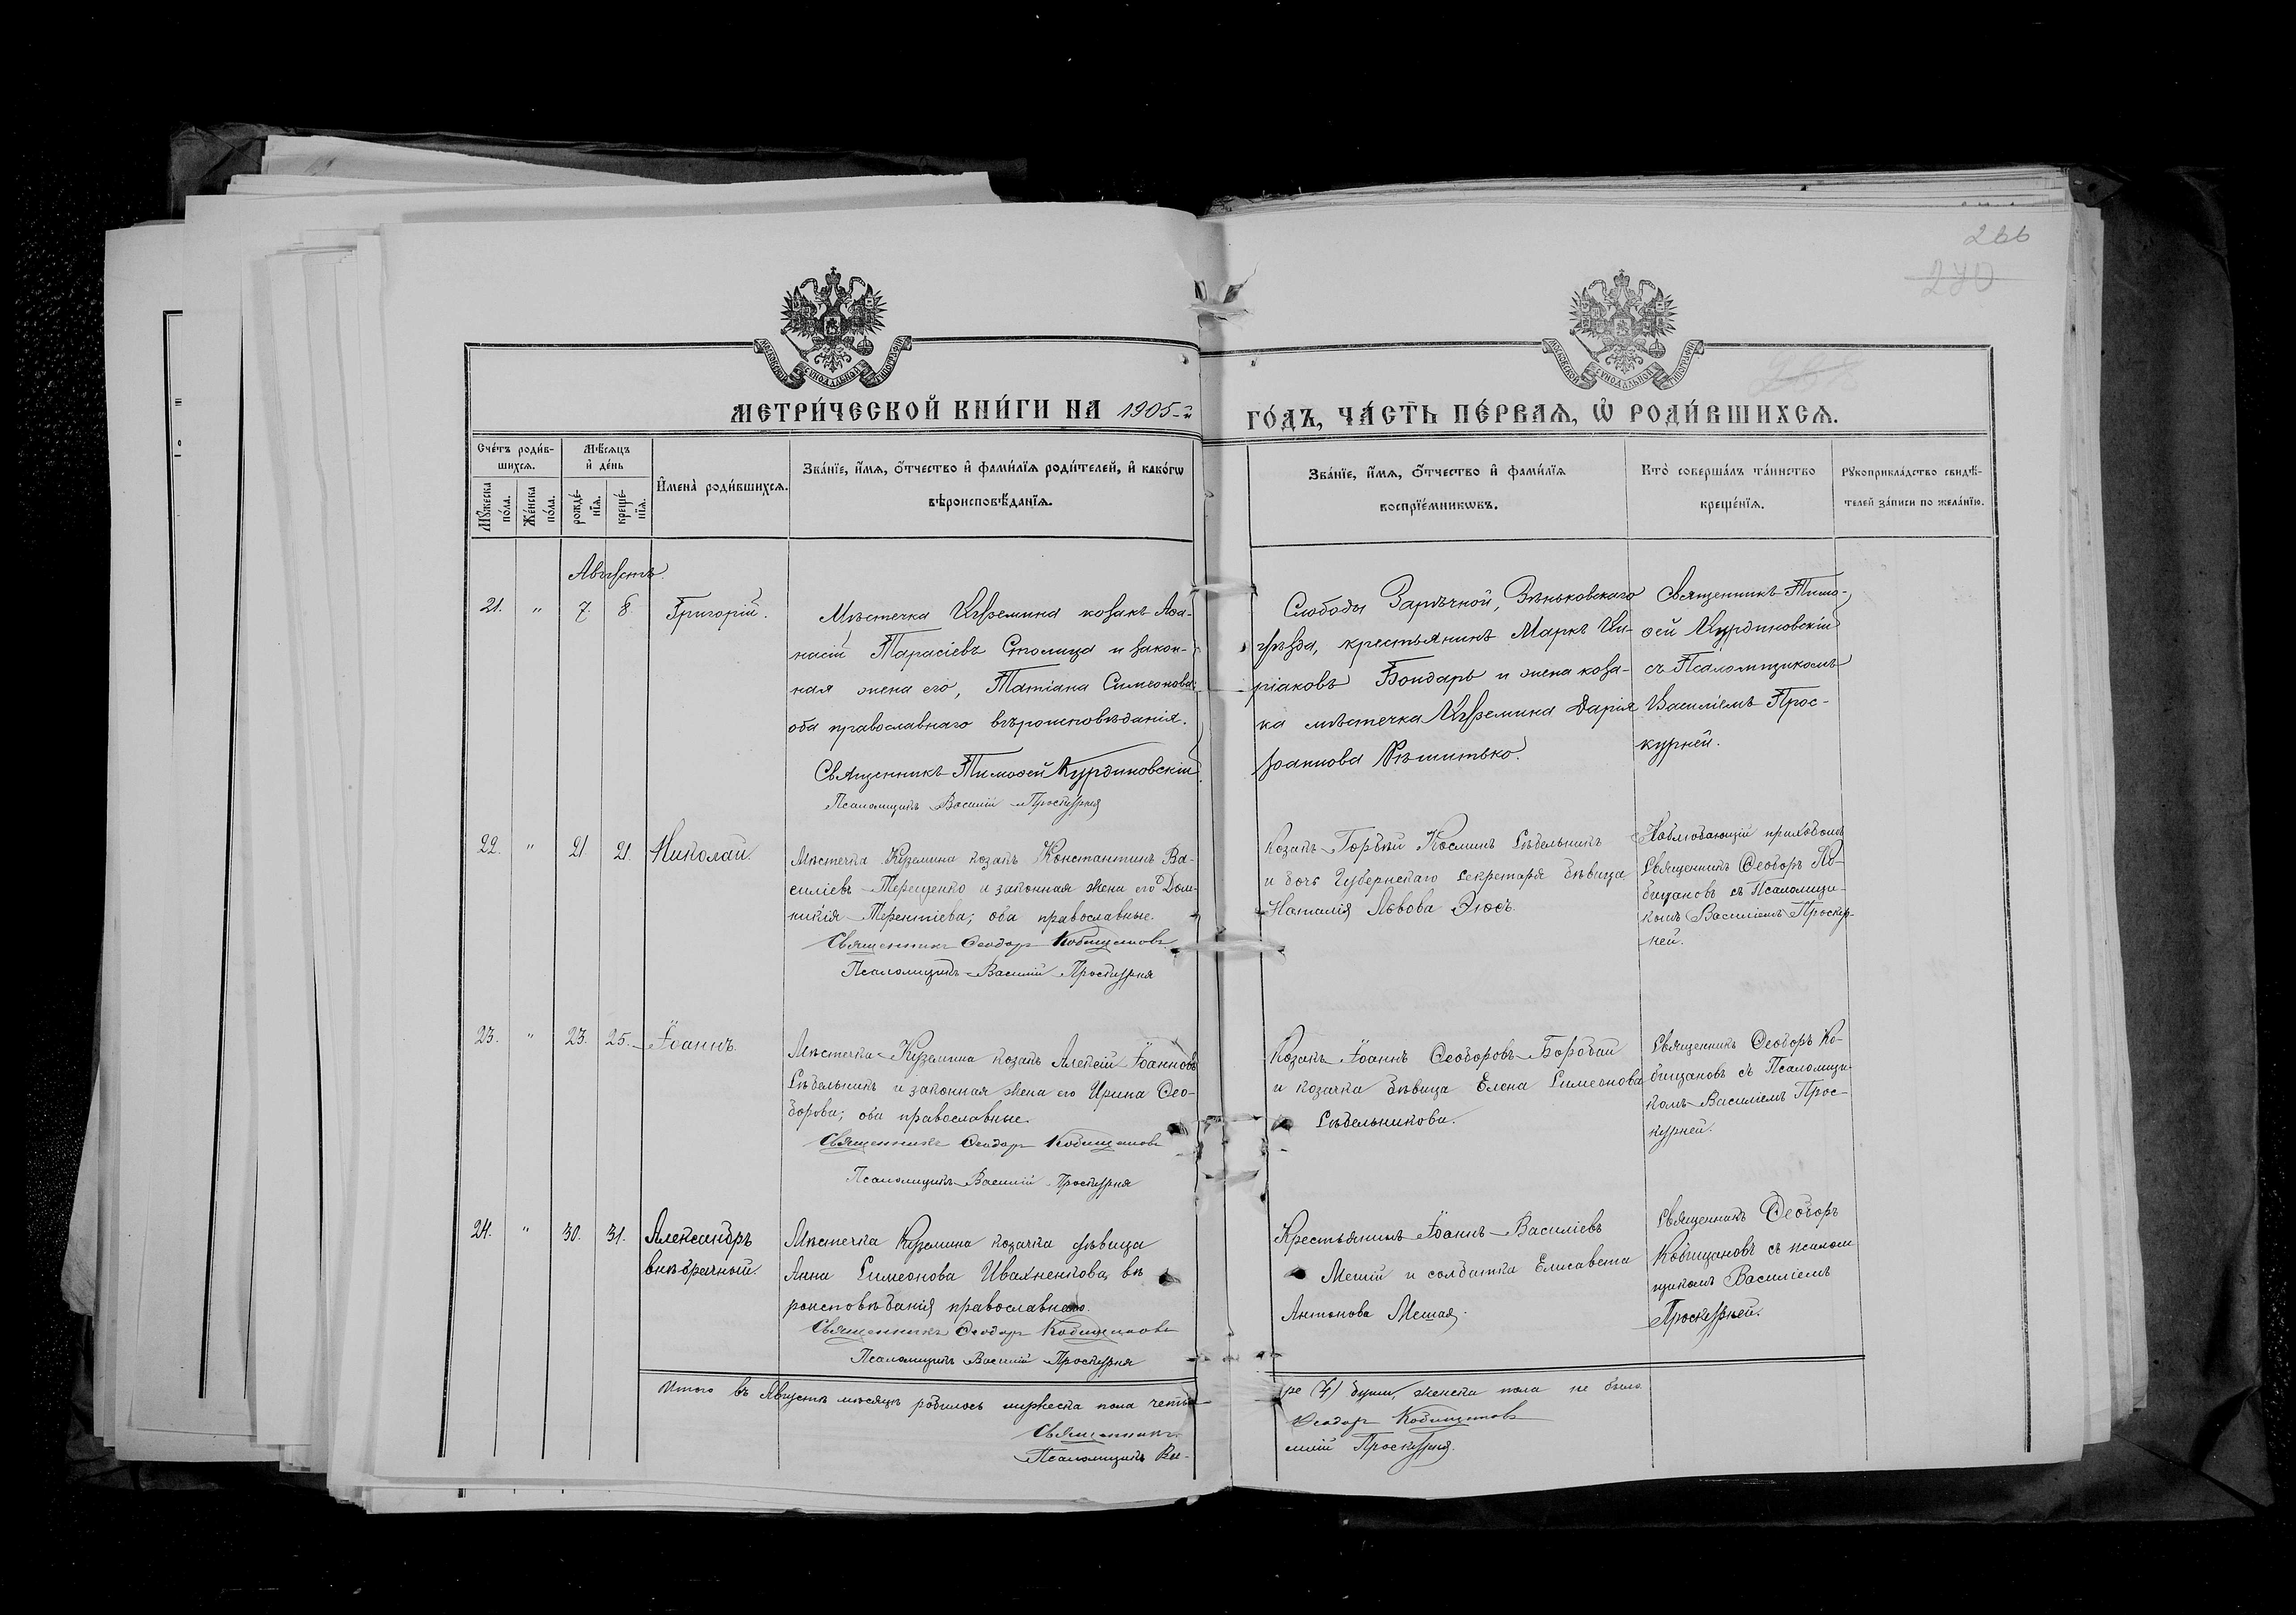 266
270
МОСКОВСКОЙ СѴНОДАЛЬНОЙ ТИПОГРАФІИ
МОСКОВСКОЙ СѴНОДАЛЬНОЙ ТИПОГРАФІИ
МЕТРИ́ЧЕСКОЙ КНИ́ГИ НА 1905-й
ГО́ДЪ, ЧА́СТЬ ПЕ́РВАѦ, Ѡ҆ РОДИ́ВШИХСѦ.
Сче́тъ роди́в-
шихсѧ.
Мѣ́сѧцъ
и҆ де́нь
И҆мена̀ роди́вшихсѧ.
Зва́нїе, и҆́мѧ, ѻ҆́тчество и҆ фами́лїѧ роди́телей, и҆ како́гѡ
вѣроисповѣ́данїѧ.
Мꙋ́жеска
по́ла.
Же́нска
по́ла.
рожде́-
нїѧ.
креще́-
нїѧ.
Зва́нїе, и҆́мѧ, ѻ҆́тчество и҆ фами́лїѧ
воспрїе́мникѡвъ.
Кто̀ соверша́лъ та́инство
креще́нїѧ.
Рꙋкоприкла́дство свидѣ́-
телей за́писи по жела́нїю.
Августъ.
21. " 7. 8 Григорій.
Мѣстечка Куземина козакъ Аѳа-
насій Тарасіевъ Столица и закон-
ная жена его, Татіана Симеонова
оба православнаго вѣроисповѣданія.
Священникъ Тимоѳей Курдиновскій
Псаломщикъ Василій Проскурня
Слободы Зарѣчной, Зѣньковскаго
уѣзда, крестьянинъ Маркъ Ки-
ріаковъ Бондарь и жена коза-
ка мѣстечка Куземина Дарія
Іоаннова Рѣшитько.
Священникъ Тимо-
ѳей Курдиновскій
съ Псаломщикомъ
Василіемъ Прос-
курней.
22. " 21 21. Николай.
Мѣстечка Куземина козакъ Константинъ Ва-
силіевъ Терещенко и законная жена его Дом-
никія Терентіева; оба православные.
Священникъ Ѳеодоръ Кобищановъ
Псаломщикъ Василій Проскурня
Козакъ Косминъ Сѣдельникъ
и дочь Губернскаго секретаря дѣвица
Наталія Львова
Наблюдающій приходомъ
Священникъ Ѳеодоръ Ко-
бищановъ съ Псаломщи-
комъ Василіемъ Проскур-
ней.
23. " 23. 25. Іоаннъ.
Мѣстечка Куземина козакъ Алексій Іоанновъ
Сѣдельникъ и законная жена его Ирина Ѳео-
дорова; оба православные.
Священникъ Ѳеодоръ Кобищановъ
Псаломщикъ Василій Проскурня
Козакъ Іоаннъ Ѳеодоровъ Бородай
и козачка дѣвица Елена Симеонова
Сѣдельникова.
Священникъ Ѳеодоръ Ко-
бищановъ съ Псаломщи-
комъ Василіемъ Прос-
курней.
24. " 30. 31. Александръ
внѣбрачный.
Мѣстечка Куземина козачка дѣвица
Анна Симеонова Ивахненкова, вѣ
роисповѣданія православнаго.
Священникъ Ѳеодоръ Кобищановъ
Псаломщикъ Василій Проскурня
Крестьянинъ Іоаннъ Василіевъ
и солдатка Елисавета
Антонова
Священникъ Ѳеодоръ
Кобищановъ съ псалом
щикомъ Василіемъ
Проскурней.
Итого въ Августѣ мѣсяцѣ родилось мужеска пола четы-
ре (4) души, женска пола не было.
Священникъ
Ѳеодоръ Кобищановъ
Псаломщикъ Ва-
силій Проскурня.